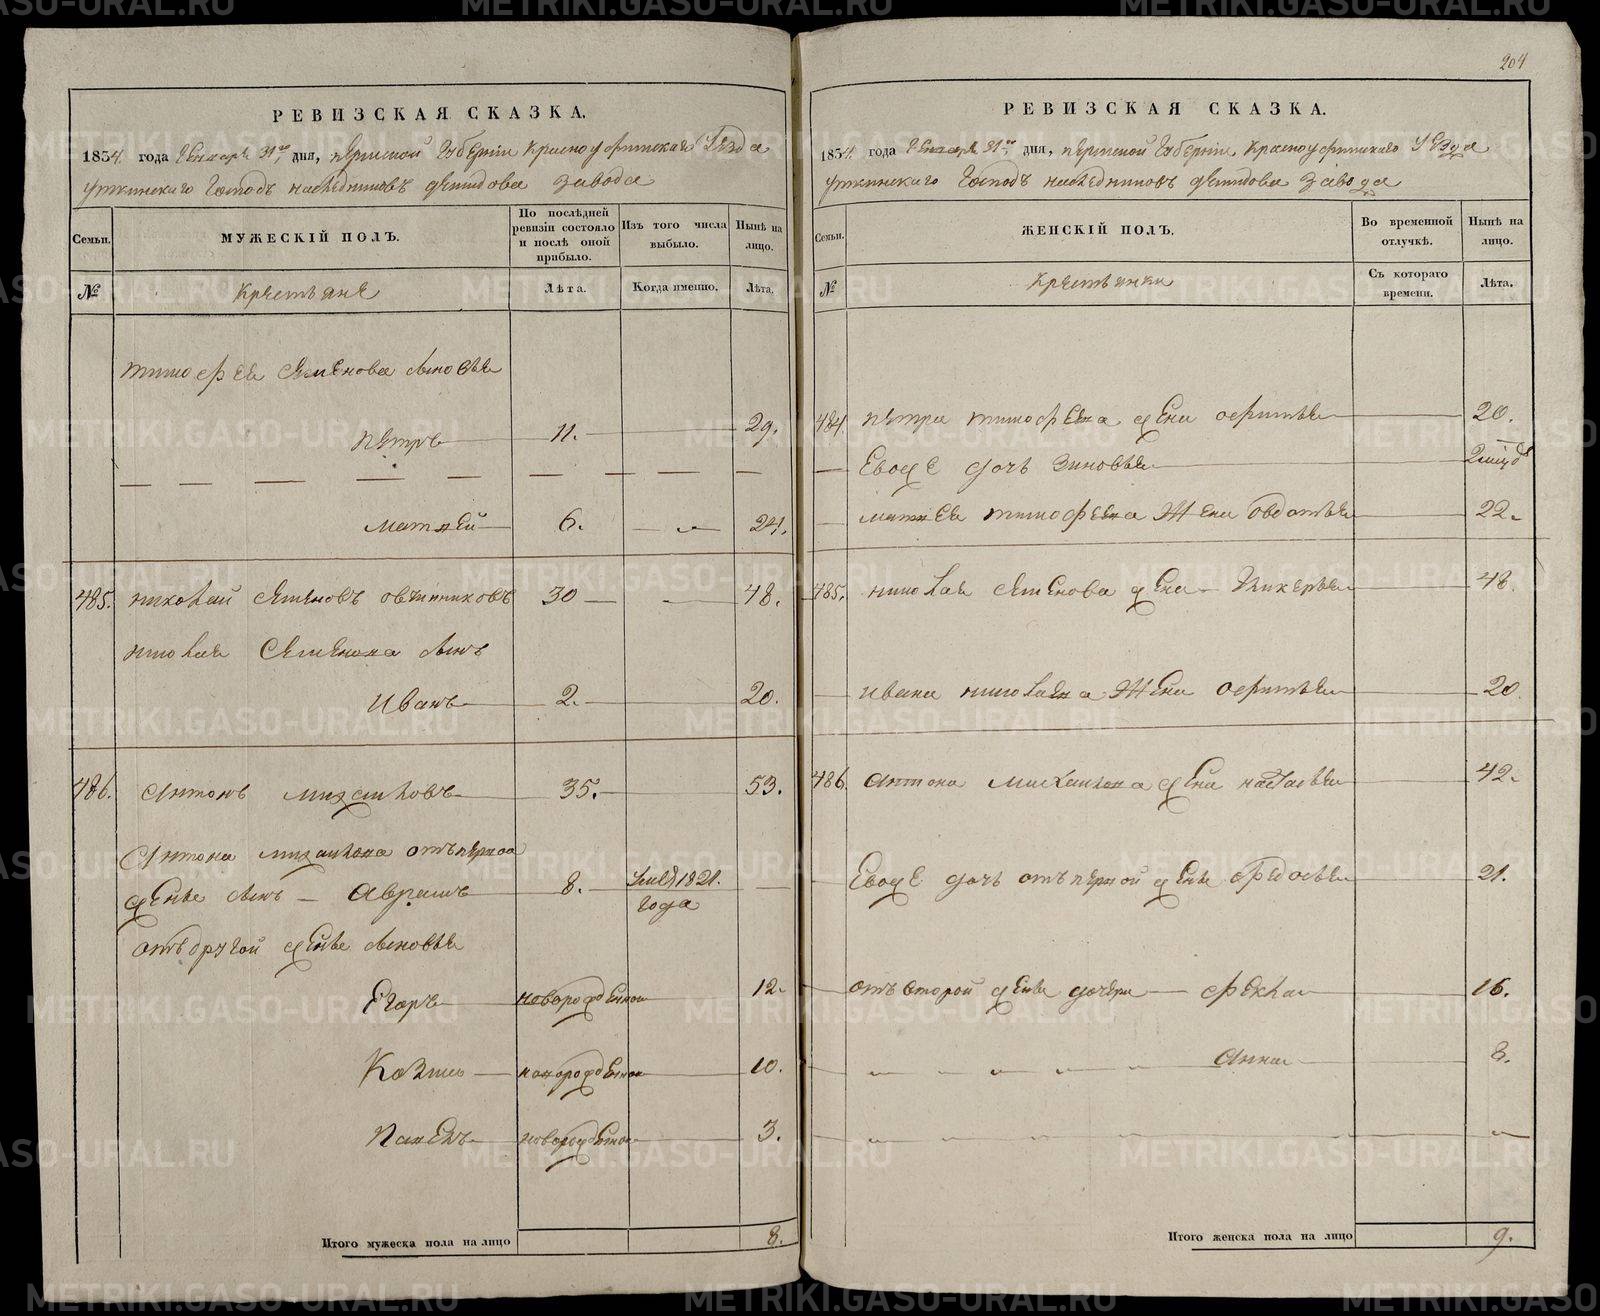 204
РЕВИЗСКАЯ СКАЗКА.
1854 года Генваря 31го дня, Пермской Губернiи Красноуфимскаго Уезда
Уткинскаго Господъ наследниковъ Демидова завода
Семьи.
МУЖЕСКІЙ ПОЛЪ.
По послѣдней ревизіи состояло и послѣ оной прибыло.
Изъ того числа выбыло.
Нынѣ на лицо.
№
Крестьяне
Лѣта.
Когда именно.
Лѣта.
Тимофея Семенова сыновья
Петръ 11. 29.
Матвей 6. 24.
485. Николай Семеновъ Овчинниковъ 30 48.
Николая Семенова сынъ
Иванъ 2. 20.
486. Антонъ Михаиловъ 35. 53.
Антона Михаилова отъ первой
жены сынъ Аврамъ 8. 1821. года
отъ другой жены сыновья
Егоръ новорожденной 12.
Козма новорожденной 10.
Павелъ новорожденной 3.
Итого мужеска пола на лицо 8.
РЕВИЗСКАЯ СКАЗКА.
1854. года Генваря 31го дня, Пермской Губернiи Красноуфимскаго Уезда
Уткинскаго Господъ наследниковъ Демидова завода
Семьи.
ЖЕНСКІЙ ПОЛЪ.
Во временной отлучкѣ.
Нынѣ на лицо.
№
Крестьянки
Съ котораго времени.
Лѣта.
484 Петра Тимофеева жена Офимья 20.
Евоже дочь Зиновья
Матвея Тимофеева жена Овдотья 22.
485. Николая Семенова жена Гликерья 48.
Ивана Николаева жена Офимья 20
486. Антона Михаилова жена Настасья 42.
Евоже дочь отъ первой жены Федосья 21.
отъ второй жены дочери Фекла 16.
Анна 8.
Итого женска пола на лицо 9.
METRIKI.GASO-URAL.RU